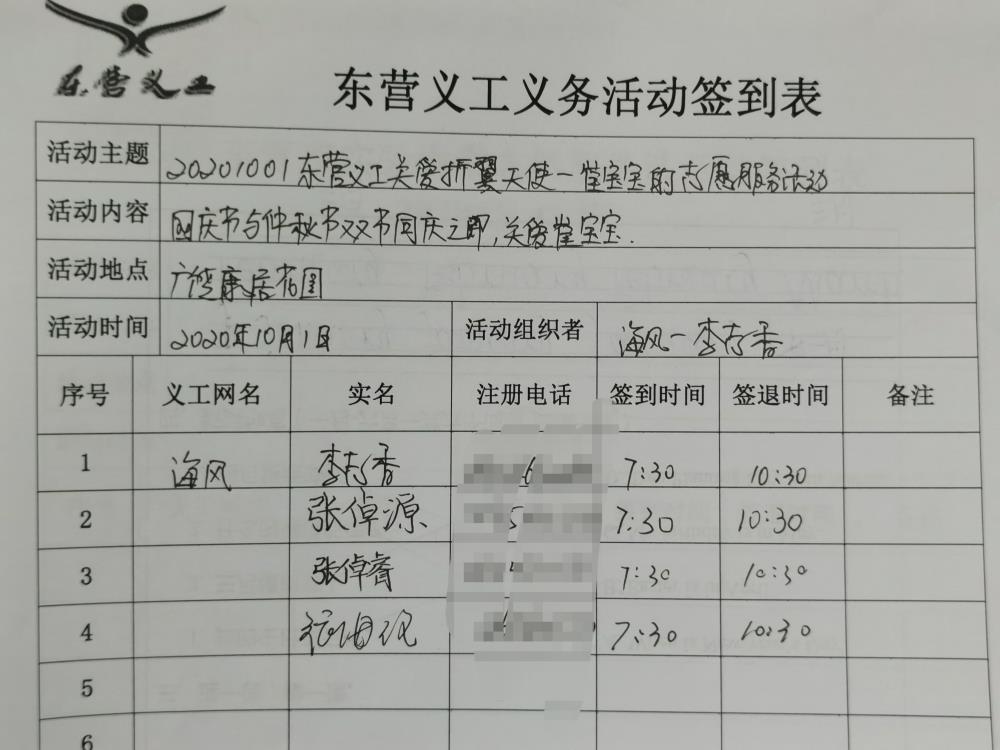 东营义工
东营义工义务活动签到表
活动主题 20201001东营义工关爱折翼天使一堂宝宝的志愿服务活动
活动内容 国庆节与仲秋节双节同庆之即,关爱堂宝宝.
活动地点 广饶康居花园
活动时间 2020年10月1日 活动组织者 海风-李志香
序号 义工网名 实名 注册电话 签到时间 签退时间 备注
1 海风 李志香 7:30 10:30
2 张倬源 7:30 10:30
3 张倬睿 7:30 10:30
4 7:30 10:30
5
6